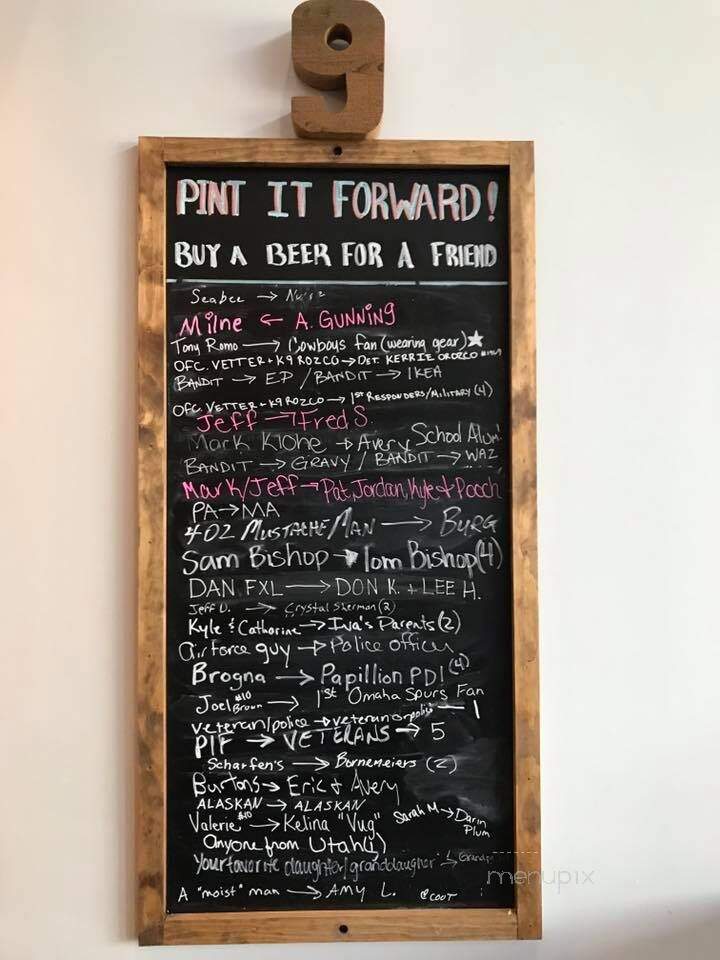 9
PINT IT FORWARD!
BUY A BEER FOR A FRIEND
Seabee →
Milne ← A. GUNNING
Tony Romo → Cowboys fan (wearing gear) ★
OFC. VETTER + K9 ROZCO → DET. KERRIE OROZCO
BANDIT → ED / BANDIT → IKEA
OFC. VETTER + K9 ROZCO → 1ST RESPONDERS/MILITARY (4)
Jeff → Fred S.
Mark Klohe → Avery School Alum!
BANDIT → GRAVY / BANDIT → WAZ
Mark/Jeff → Pat, Jordan, Kyle + Pooch
PA → MA
402 MUSTACHE MAN → BURG
Sam Bishop → Tom Bishop (4)
DAN FXL → DON K. + LEE H.
Jeff D. → Crystal Sherman (2)
Kyle & Catharine → Iva's Parents (2)
Air Force guy → Police officer
Brogna → Papillion PD! (4)
Joel Brown $10 → 1st Omaha Spurs Fan
veteran/police → veteran or police — 1
PIF → VETERANS → 5
Scharfen's → Bornemeiers (2)
Burtons → Eric + Avery
ALASKAN → ALASKAN
Valerie $10 → Kelina "Vug" Sarah M → Darin Plum
Anyone from Utah :)
Your favorite daughter/granddaughter → Grandpa
A "moist" man → AMY L. @COOT
menupix